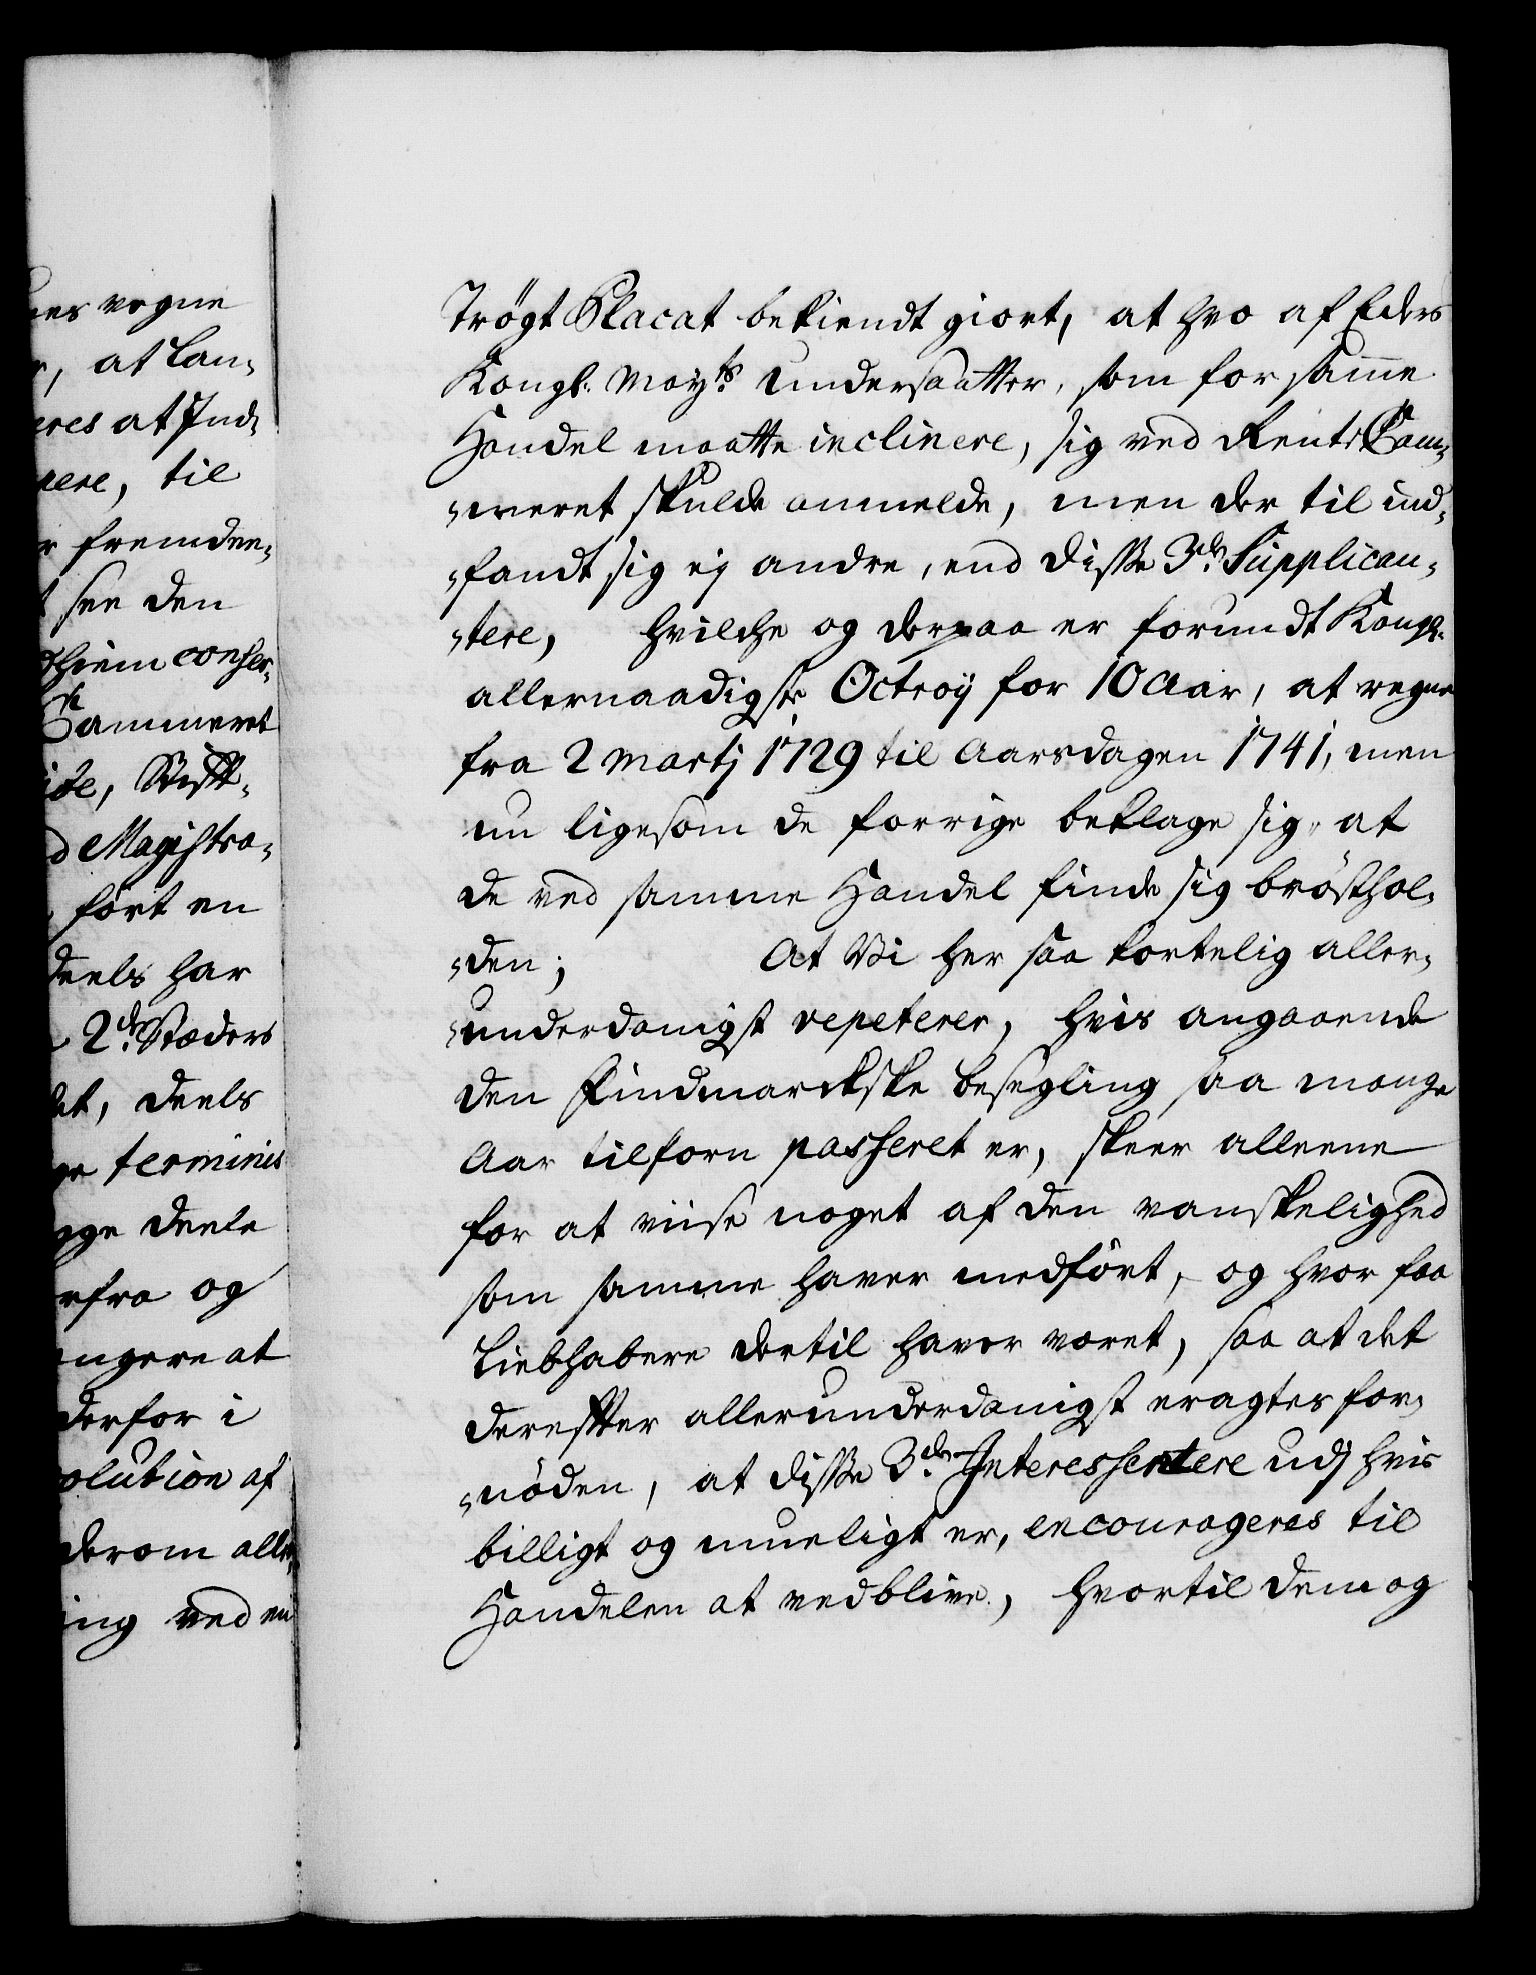 nes vegne
r, at Lan-
eres at Ind-
nere, til
r fremdee-
t see den
Thiem conser-
Cammeret
ide, Stift-
d Magistra-
ført en
deels har
2de Stæders
det, deels
ge terminis
gge deele
rfra og
ngere at
derfor i
solution af
derom aller-
ing ved en
Trögt Placat bekiendt giort, at hvo af Eders
Kongl: Mayts Undersaatter, som for samme
Handel maatte inclinere, sig ved Rente Cam-
-meret skulde anmelde, men der til ind-
-fandt sig ej andre, end disse 3de Supplican-
-tere, hvilche og derpaa er forundt Kongl:
allernaadigste Octroij for 10 Aar, at regne
fra 2 Martj 1729 til Aarsdagen 1741, men
nu ligesom de forrige beklage sig, at
de ved samme Handel finde sig brösthol-
-den; At Vi her saa kortelig aller-
-underdanigst repeterer, hvis angaaende
den Findmarckske besegling saa mange
Aar tilforn passeret er, skeer alleene
for at viise noget af den vanskelighed
som samme haver medfört, og hvor faa
Liebhabere dertil haver været, saa at det
derefter allerunderdanigst eragtes for-
-nöden, at disse 3de Interessentere udj hvis
billigt og mueligt er, encourageres til
Handelen at vedblive, hvortil dem og